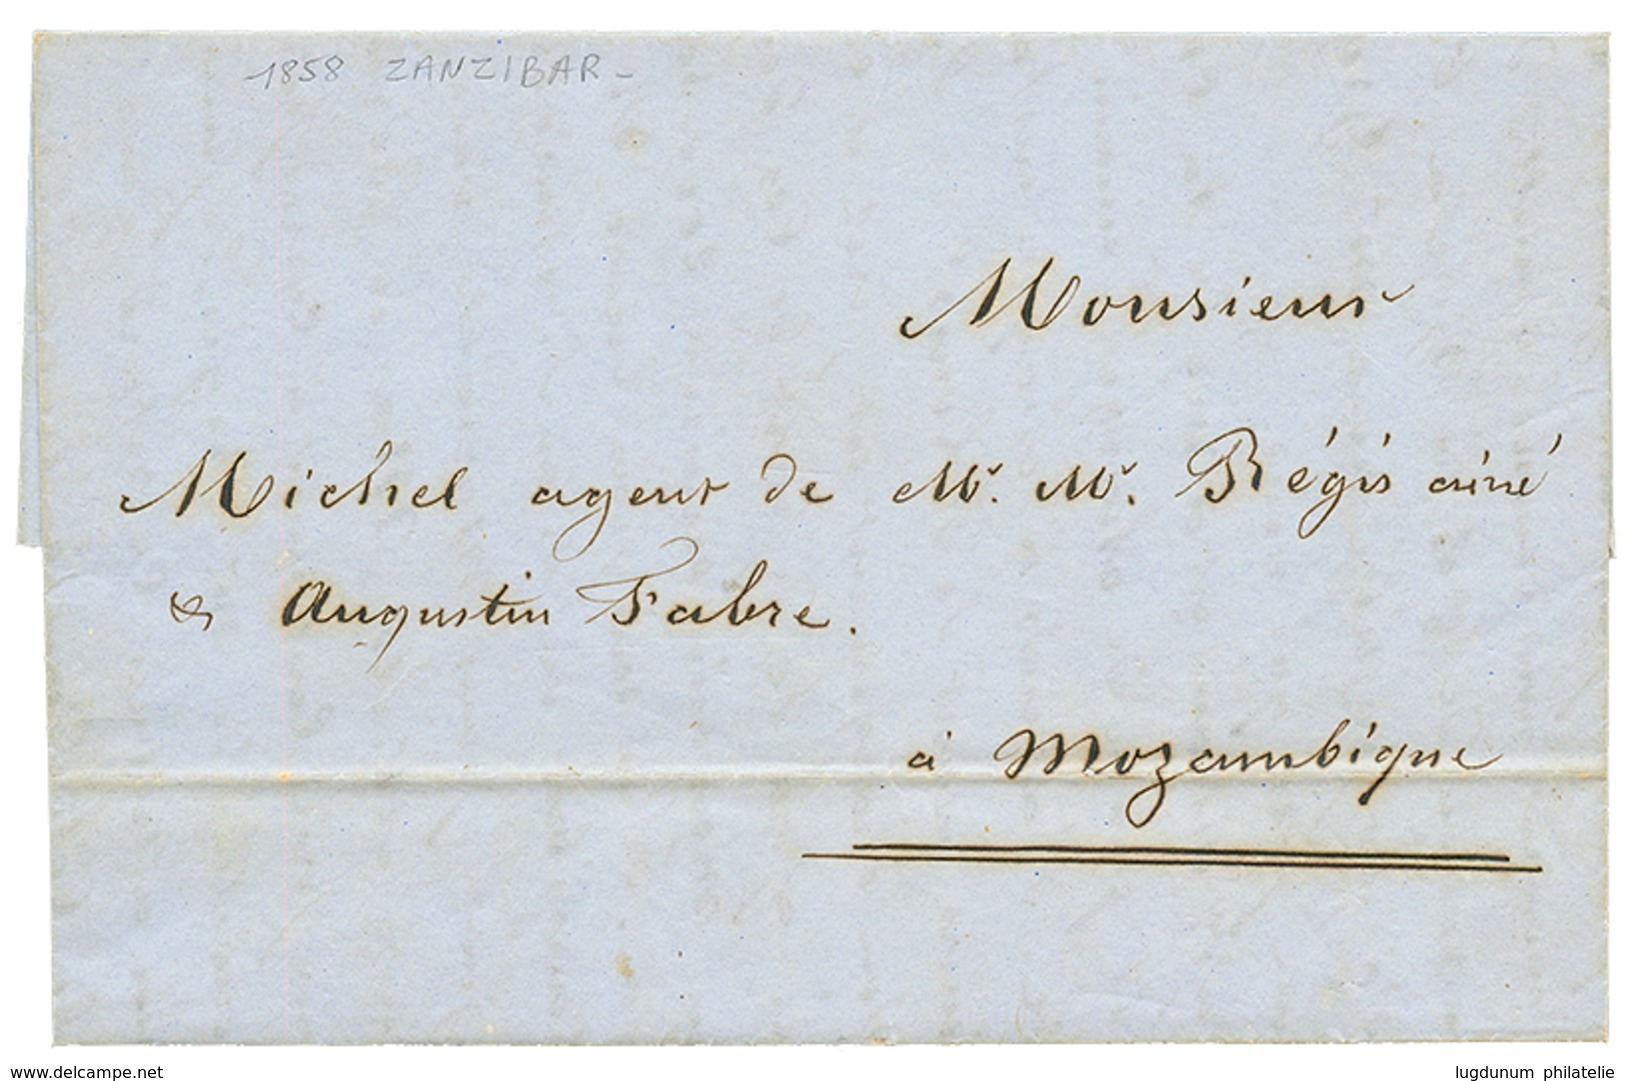 1858 ZANZIBAR -
Monsieur
Michel agent de Mr. Mr. Régis aîné
& Augustin Fabre.
à Mozambique
www.delcampe.net
lugdunum philatelie